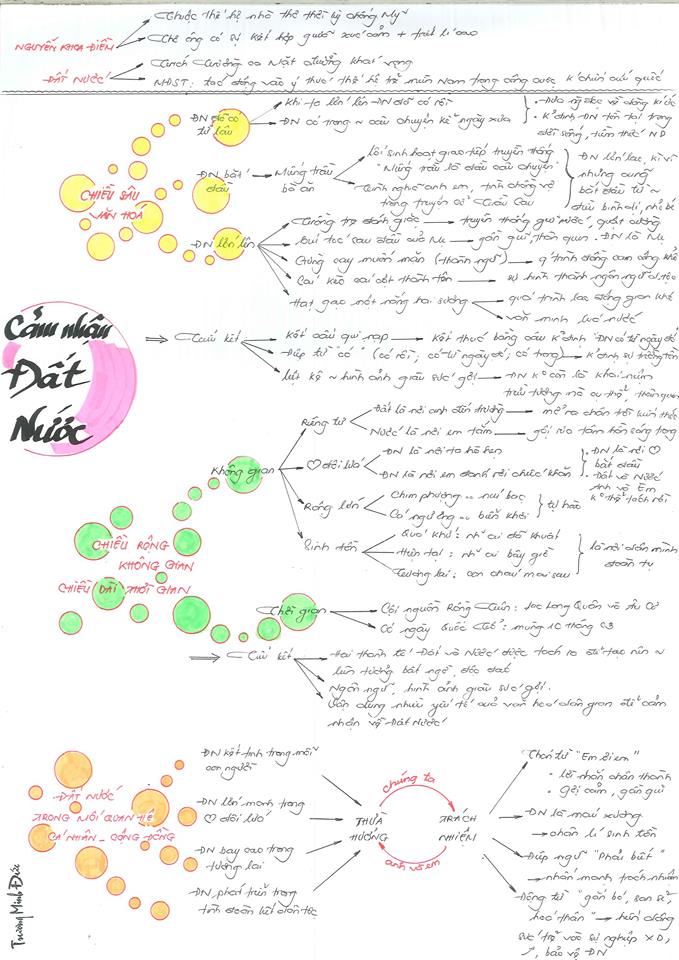 NGUYỄN KHOA ĐIỀM
Thuộc thế hệ nhà thơ thời kỳ chống Mỹ
Thơ ông có sự kết hợp giữa xúc cảm + triết lí
ĐẤT NƯỚC
Trích trường ca Mặt đường khát vọng
MĐST: tác động vào ý thức thế hệ trẻ miền Nam trong công cuộc k/chiến cứu quốc
Cảm nhận
Đất
Nước
CHIỀU SÂU
VĂN HOÁ
ĐN đã có
từ lâu
Khi ta lớn lên ĐN đã có rồi
ĐN có trong ~ câu chuyện kể ngày xưa
ĐN bắt
đầu
Miếng trầu
bà ăn
Lối sinh hoạt giao tiếp truyền thống
"Miếng trầu là đầu câu chuyện"
Tình nghĩa anh em, tình chồng vợ
trong truyện cổ Trầu Cau
ĐN lớn lên
Trồng tre đánh giặc
truyền thống giữ nước, quật cường
Búi tóc sau đầu của Mẹ
gần gũi thân quen. ĐN là Mẹ
Gừng cay muối mặn (thành ngữ)
Cái kèo cái cột thành tên
sự hình thành ngôn ngữ d.tộc
Hạt gạo một nắng hai sương
quá trình lao động gian khổ
văn minh lúa nước
Tiểu kết
Kết cấu qui nạp
Kết thúc bằng câu k/định "ĐN có từ ngày đó"
Điệp từ "có" (có rồi; có từ ngày đó; có trong)
k/định sự trường tồn
Liệt kê ~ hình ảnh giàu sức gợi
ĐN ko còn là khái niệm
trừu tượng mà cụ thể, thân quen
CHIỀU RỘNG
KHÔNG GIAN
CHIỀU DÀI THỜI GIAN
Không gian
Riêng tư
Đất là nơi anh đến trường
mở ra chân trời kiến thức
Nước là nơi em tắm
♡ đôi lứa
ĐN là nơi ta hò hẹn
ĐN là nơi em đánh rơi chiếc khăn
. ĐN là nơi ♡
bắt đầu
. Đất và Nước
Anh và Em
ko thể tách rời
Rộng lớn
Chim phượng .. núi bạc
Cá ngư ông .. biển khơi
tự hào
Sinh tồn
Quá khứ: nh~ ai đã khuất
Hiện tại: nh~ ai bây giờ
Tương lai: con cháu mai sau
là nơi dân mình
đoàn tụ
Thời gian
Cội nguồn Rồng Tiên: Lạc Long Quân và Âu Cơ
Có ngày Quốc Tổ: mùng 10 tháng 03
Tiểu kết
Hai thành tố Đất và Nước được tách ra để tạo nên ~
liên tưởng bất ngờ, độc đáo
Ngôn ngữ, hình ảnh giàu sức gợi.
Vận dụng nhiều yếu tố của văn hoá dân gian để cảm
nhận về Đất Nước
ĐẤT NƯỚC
TRONG MỐI QUAN HỆ
CÁ NHÂN - CỘNG ĐỒNG
ĐN kết tinh trong mỗi
con người
ĐN lớn mạnh trong
♡ đôi lứa
ĐN bay cao trong
tương lai
ĐN phát triển trong
tình đoàn kết dân tộc
chúng ta
THỪA
HƯỞNG
TRÁCH
NHIỆM
anh và em
Thán từ "Em ơi em"
. lời nhắn chân thành
. gợi cảm, gần gũi
ĐN là máu xương
chân lí sinh tồn
Điệp ngữ "Phải biết"
nhấn mạnh trách nhiệm
Động từ "gắn bó, san sẻ,
hoá thân"
hiến dâng
sức trẻ vào sự nghiệp XD,
bảo vệ ĐN
Trương Minh Đức